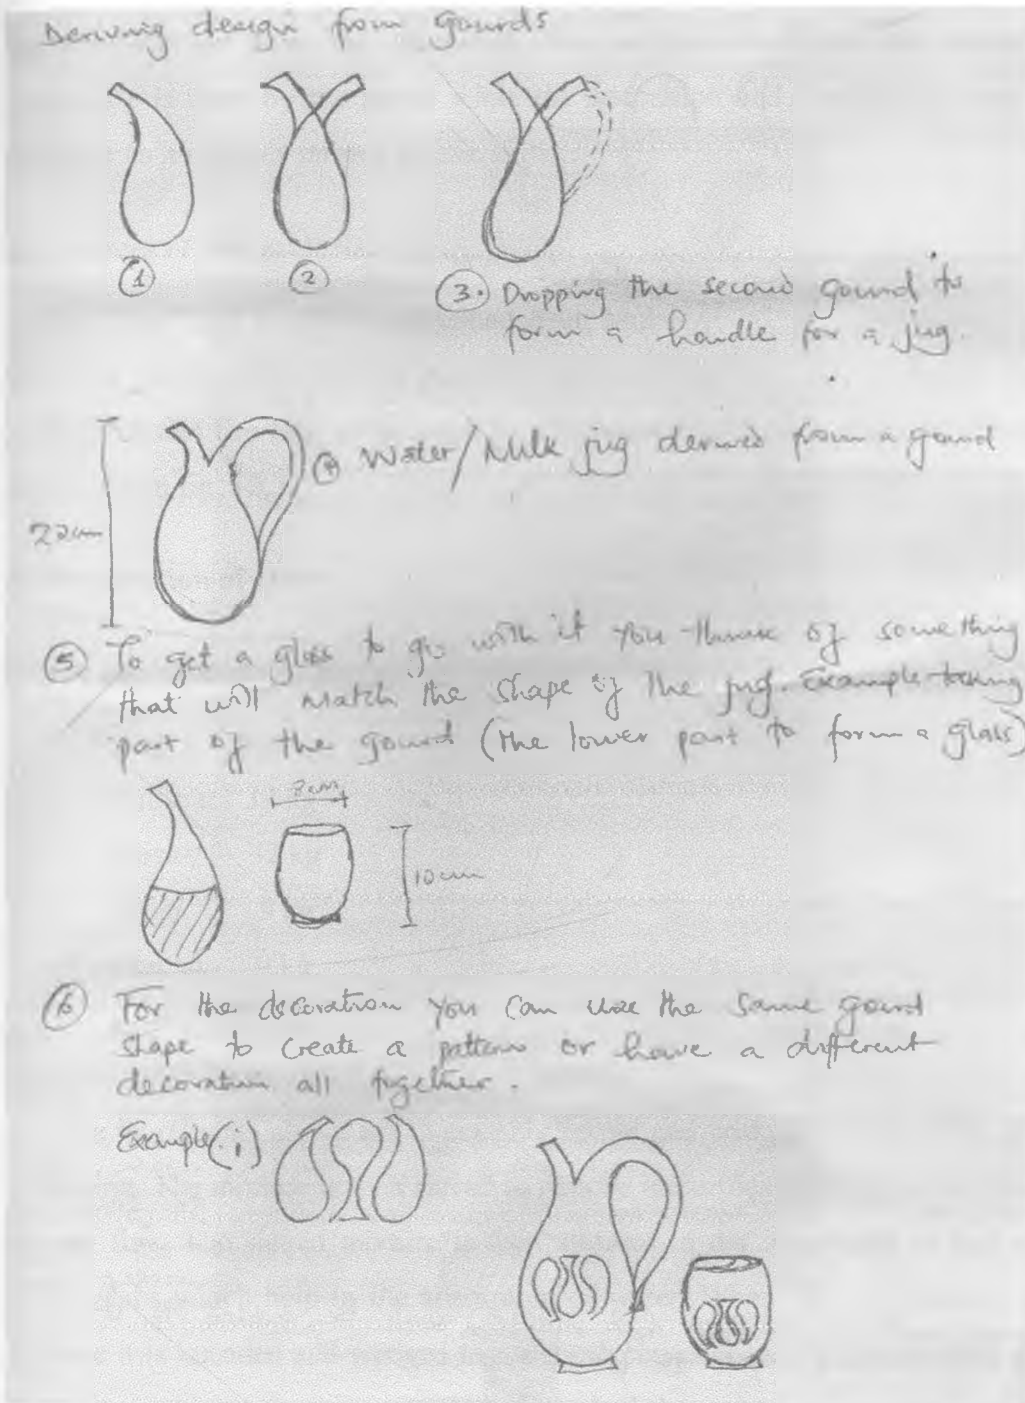 Deriving design from gourds
1
2
3. Dropping the second gourd to
form a handle for a jug.
22cm
4 Water/Milk jug derived from a gourd
5 To get a glass to go with it you think of something
that will match the shape of the jug. Example taking
part of the gourd (the lower part to form a glass)
8cm
10cm
6 For the decoration you can use the same gourd
shape to create a pattern or have a different
decoration all together.
Example (i)